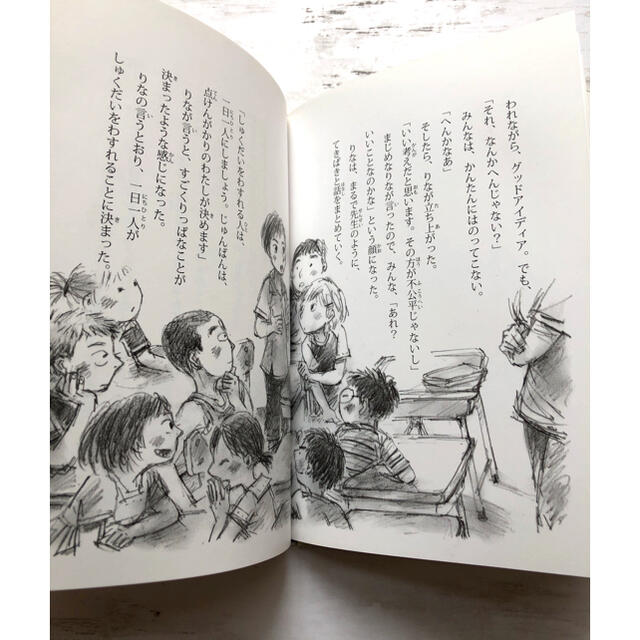 われながら、グッドアイディア。でも、
「それ、なんかへんじゃない？」
みんなは、かんたんにはのってこない。
「へんかなあ」
そしたら、りなが立ち上がった。
「いい考えだと思います。その方が不公平じゃないし」
まじめなりなが言ったので、みんな、「あれ？
いいことなのかな」という顔になった。
りなは、まるで先生のように、
てきぱきと話をまとめていく。
「しゅくだいをわすれる人は、
一日一人にしましょう。じゅんばんは、
点けんがかりのわたしが決めます」
りなが言うと、すごくりっぱなことが
決まったような感じになった。
りなの言うとおり、一日一人が
しゅくだいをわすれることに決まった。